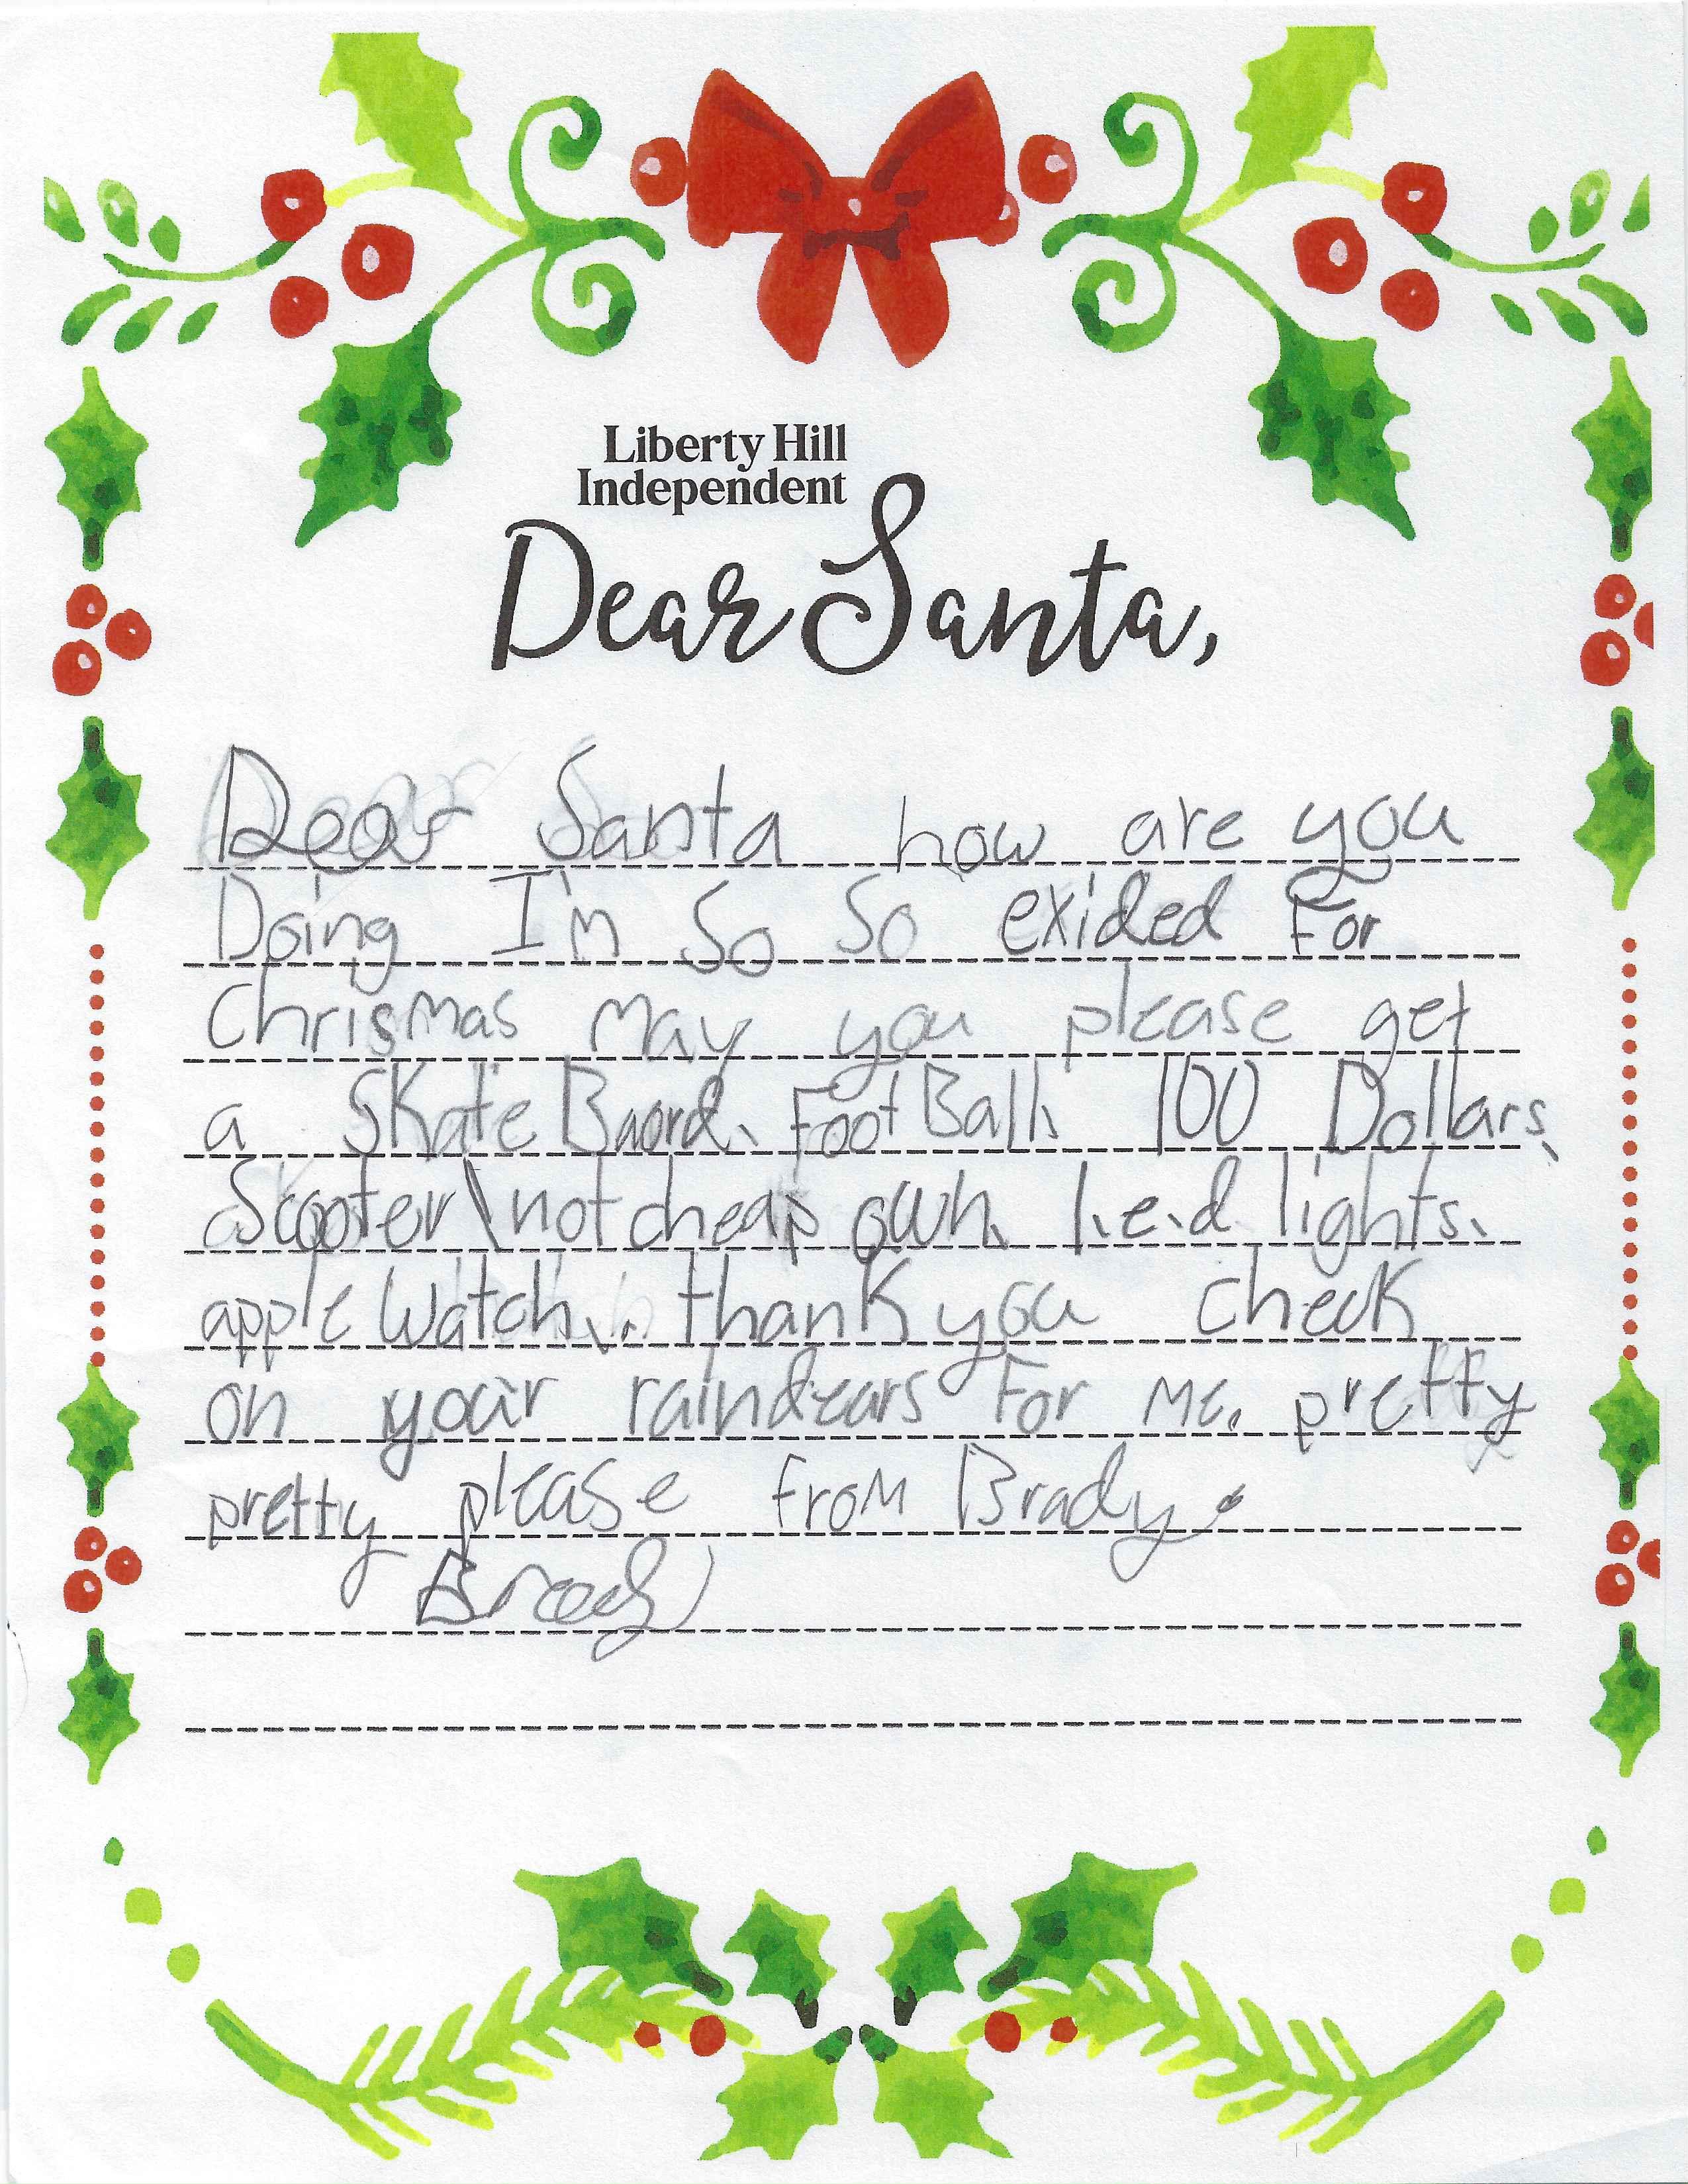 Liberty Hill
Independent
Dear Santa,
Dear Santa how are you
Doing I'm So So exided For
Chrismas May you please get
a SKate Baord, FootBall, 100 Dollars,
Scooter\not cheap own, l.e.d lights,
apple Watch,. thank you check
on your raindears For Me. pretty
pretty please From Brady.
Brady